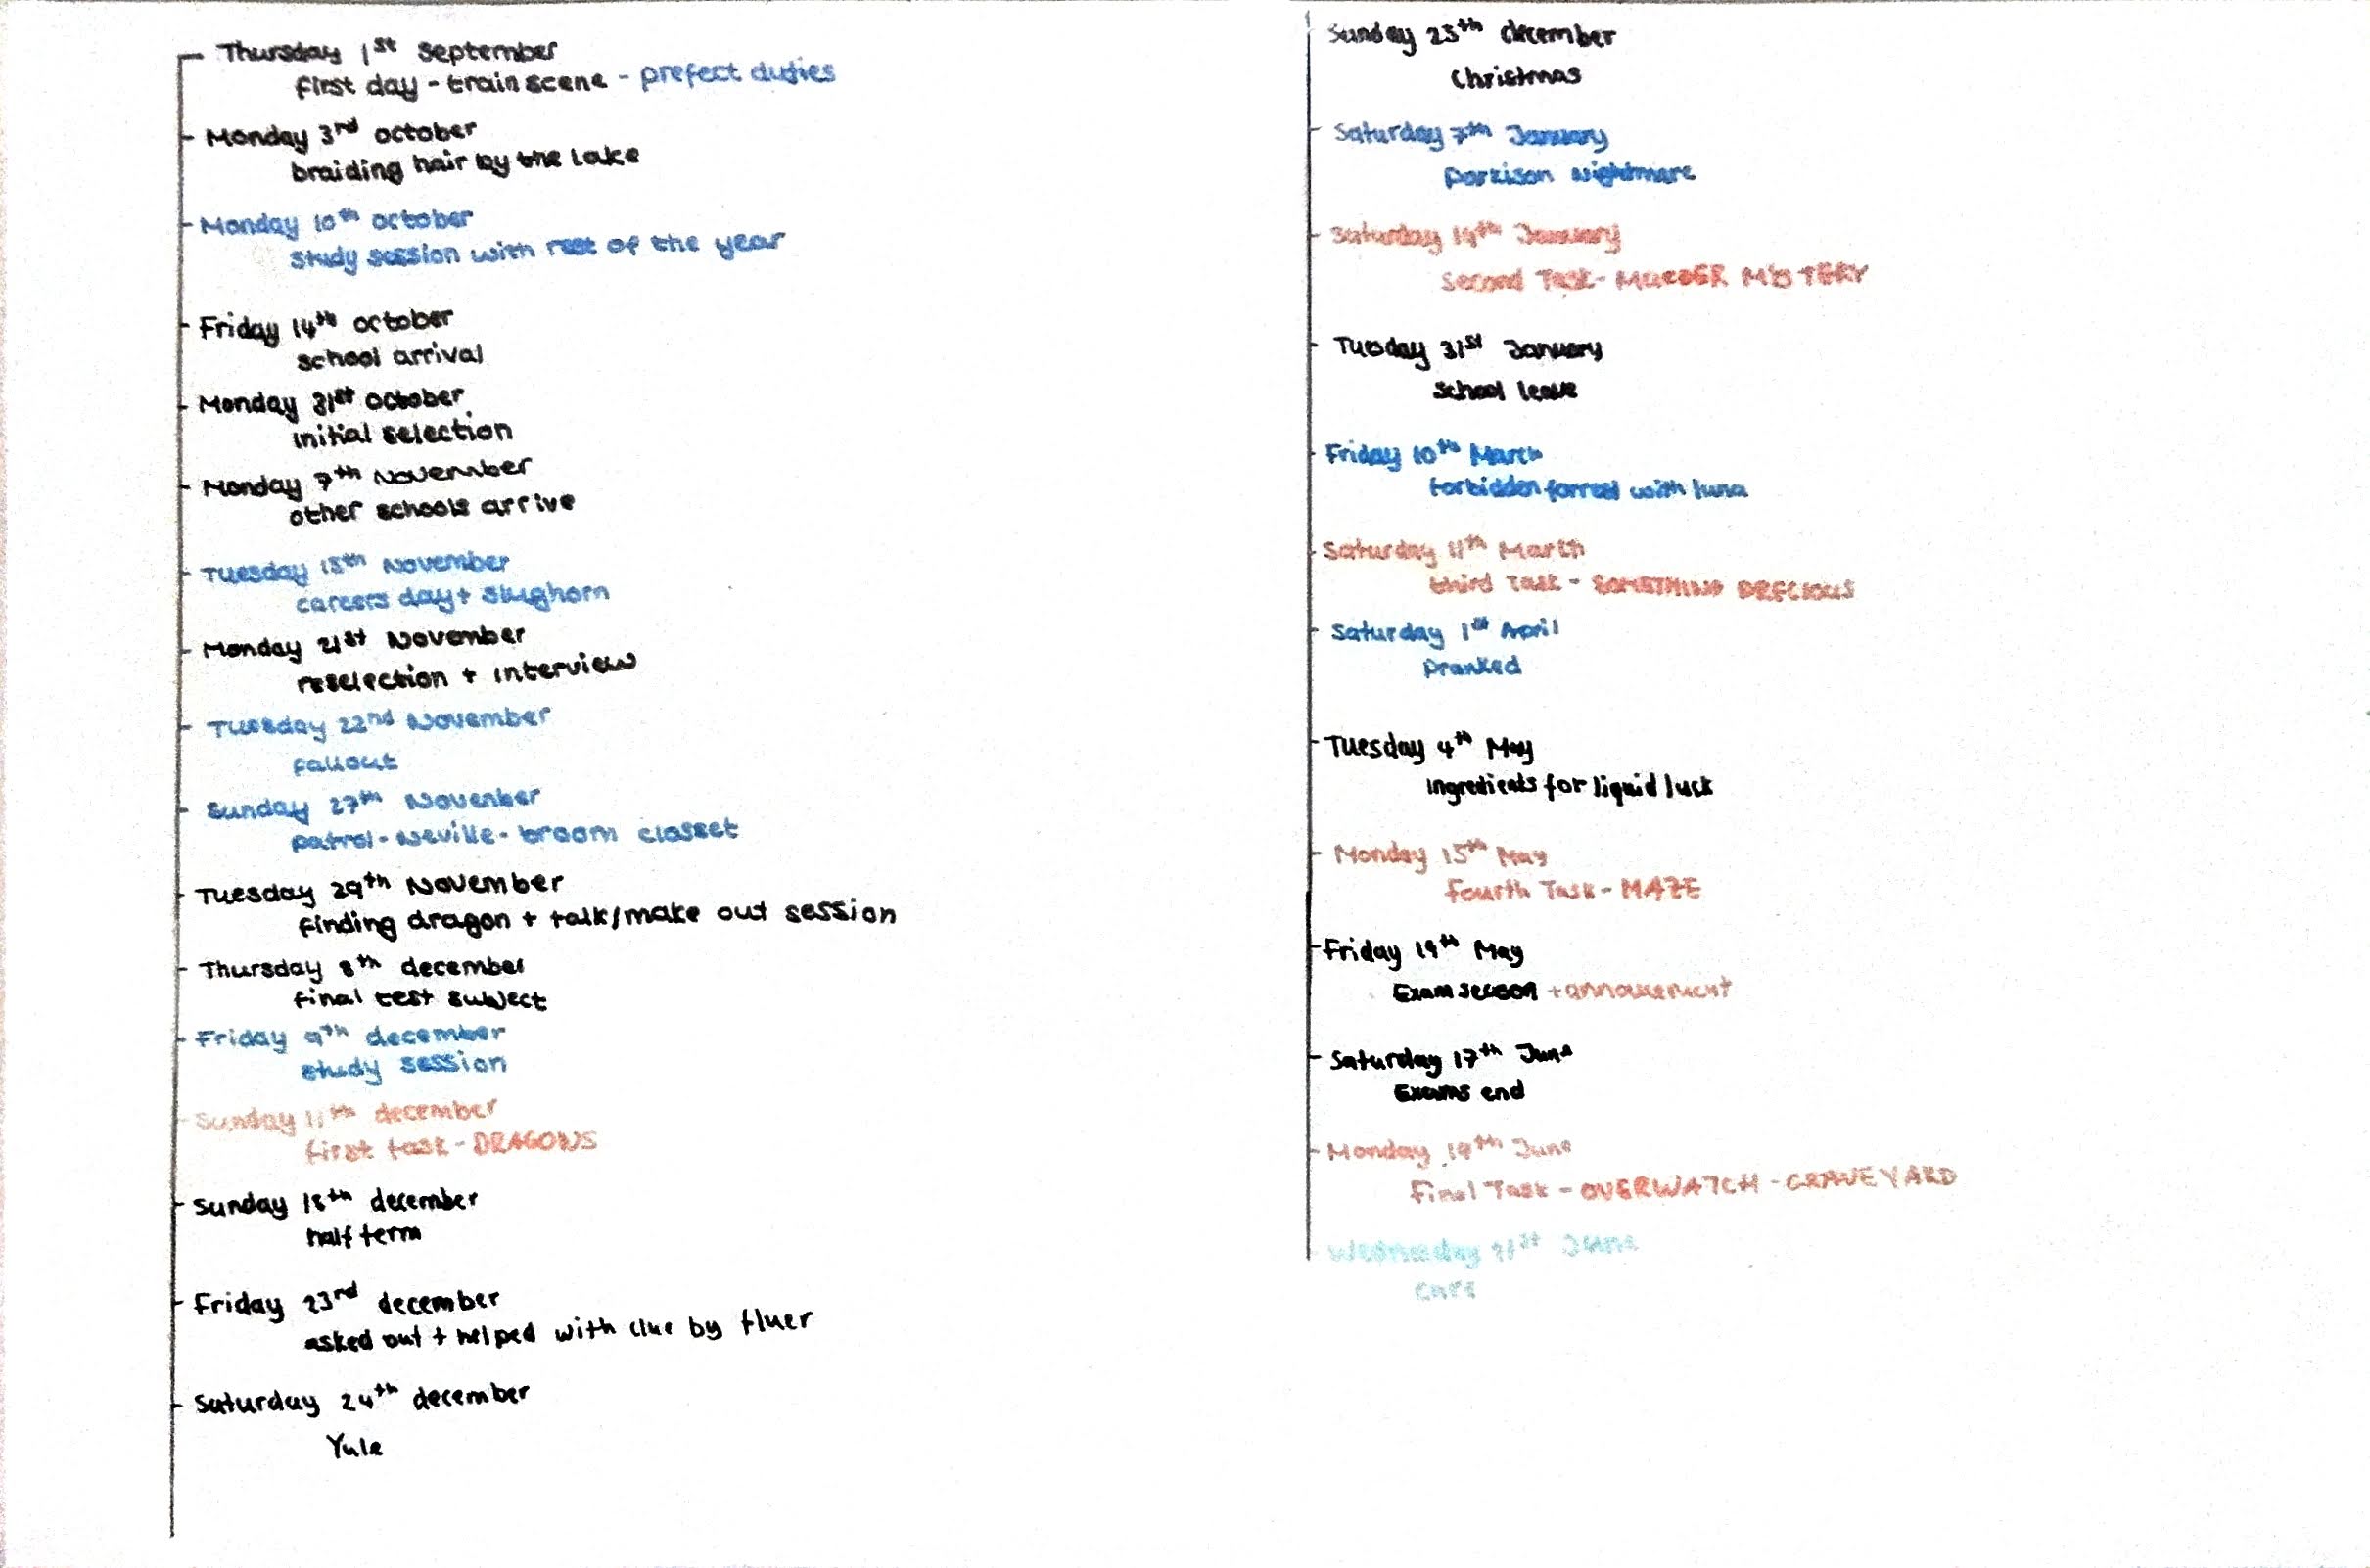 Thursday 1st September
first day - train scene - prefect duties
Monday 3rd october
braiding hair by the lake
Monday 10th october
study session with rest of the year
Friday 14th october
school arrival
Monday 31st october
initial selection
Monday 7th November
other schools arrive
Tuesday 15th November
careers day + slughorn
Monday 21st November
reselection + interview
Tuesday 22nd November
fallout
Sunday 27th November
patrol - Neville - broom closset
Tuesday 29th November
finding dragon + talk/make out session
Thursday 8th december
final test subject
Friday 9th december
study session
Sunday 11th december
first task - DRAGONS
Sunday 18th december
half term
Friday 23rd december
asked out + helped with clue by fluer
Saturday 24th december
Yule
Sunday 25th december
Christmas
Saturday 7th January
parkison nightmare
Saturday 14th January
Second Task - MURDER MYSTERY
Tuesday 31st January
School leave
Friday 10th March
forbidden forrest with luna
Saturday 11th March
third Task - SOMETHING PRECIOUS
Saturday 1st April
Pranked
Tuesday 4th May
Ingredients for liquid luck
Monday 15th May
fourth Task - MAZE
Friday 19th May
Exam season +
Saturday 17th June
Exams end
Monday 19th June
Final Task - OVERWATCH - GRAVEYARD
Wednesday 21st June